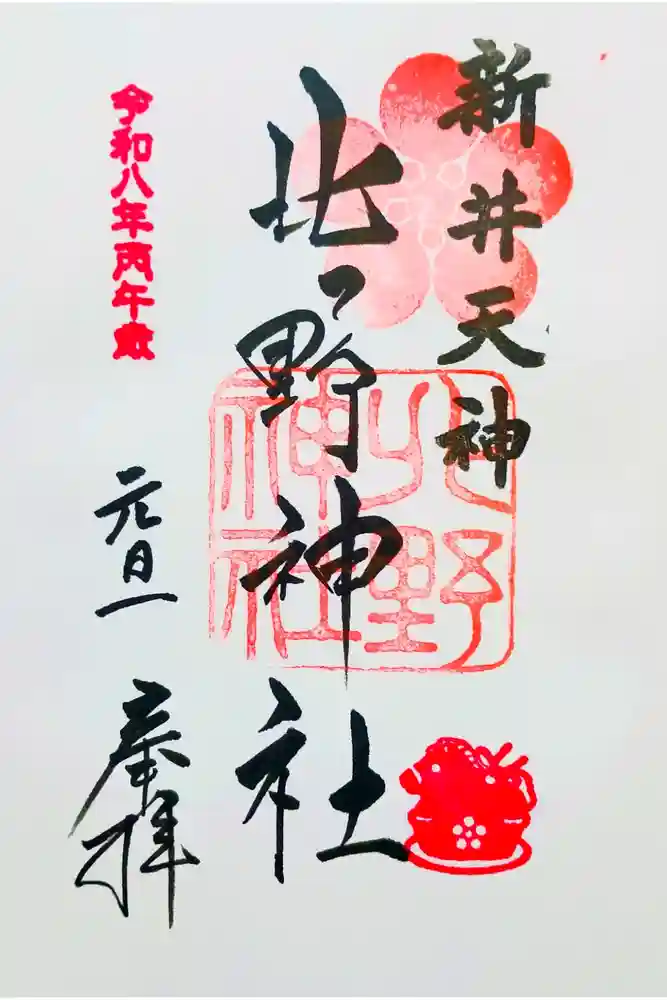 新井天神
北野神社
北野
神社
令和八年丙午歳
元旦
奉拝